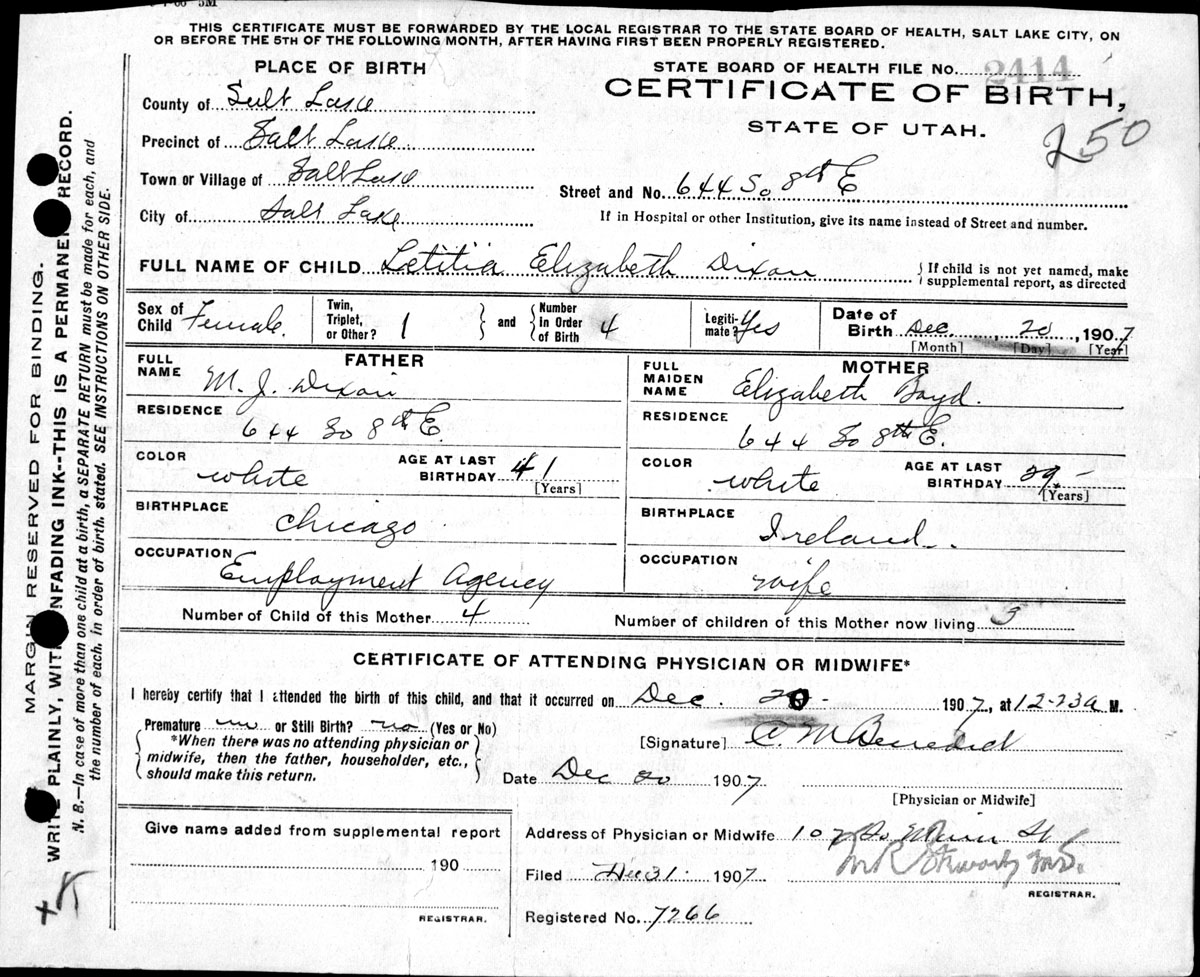 5M
THIS CERTIFICATE MUST BE FORWARDED BY THE LOCAL REGISTRAR TO THE STATE BOARD OF HEALTH, SALT LAKE CITY, ON
OR BEFORE THE 5TH OF THE FOLLOWING MONTH, AFTER HAVING FIRST BEEN PROPERLY REGISTERED.
PLACE OF BIRTH
STATE BOARD OF HEALTH FILE NO. 2414
CERTIFICATE OF BIRTH,
STATE OF UTAH.
250
County of Salt Lake
Precinct of Salt Lake
Town or Village of Salt Lake
Street and No. 644 So 8th E
City of Salt Lake
If in Hospital or other Institution, give its name instead of Street and number.
FULL NAME OF CHILD Letitia Elizabeth Dixon
If child is not yet named, make
supplemental report, as directed
Sex of Child Female.
Twin, Triplet, or Other? 1
and Number In Order of Birth 4
Legiti- mate? Yes
Date of Birth Dec. 20, 1907
[Month] [Day] [Year]
FATHER
FULL NAME M. J. Dixon
RESIDENCE 644 So 8th E.
COLOR white
AGE AT LAST BIRTHDAY 41
[Years]
BIRTHPLACE Chicago
OCCUPATION Employment Agency
MOTHER
FULL MAIDEN NAME Elizabeth Boyd.
RESIDENCE 644 So 8th E.
COLOR white
AGE AT LAST BIRTHDAY 29.
[Years]
BIRTHPLACE Ireland.
OCCUPATION wife
Number of Child of this Mother 4
Number of children of this Mother now living 3
CERTIFICATE OF ATTENDING PHYSICIAN OR MIDWIFE*
I hereby certify that I attended the birth of this child, and that it occurred on Dec. 20 1907, at 12-23a M.
Premature no or Still Birth? no (Yes or No)
*When there was no attending physician or
midwife, then the father, householder, etc.,
should make this return.
[Signature] C. M Benedict
Date Dec 20 1907
[Physician or Midwife]
Give name added from supplemental report
190
REGISTRAR.
Address of Physician or Midwife 107 So Main St
Filed Dec 31. 1907
REGISTRAR.
Registered No. 7266
MARGIN RESERVED FOR BINDING.
WRITE PLAINLY, WITH UNFADING INK--THIS IS A PERMANENT RECORD.
N. B.—In case of more than one child at a birth, a SEPARATE RETURN must be made for each, and
the number of each, in order of birth, stated. SEE INSTRUCTIONS ON OTHER SIDE.